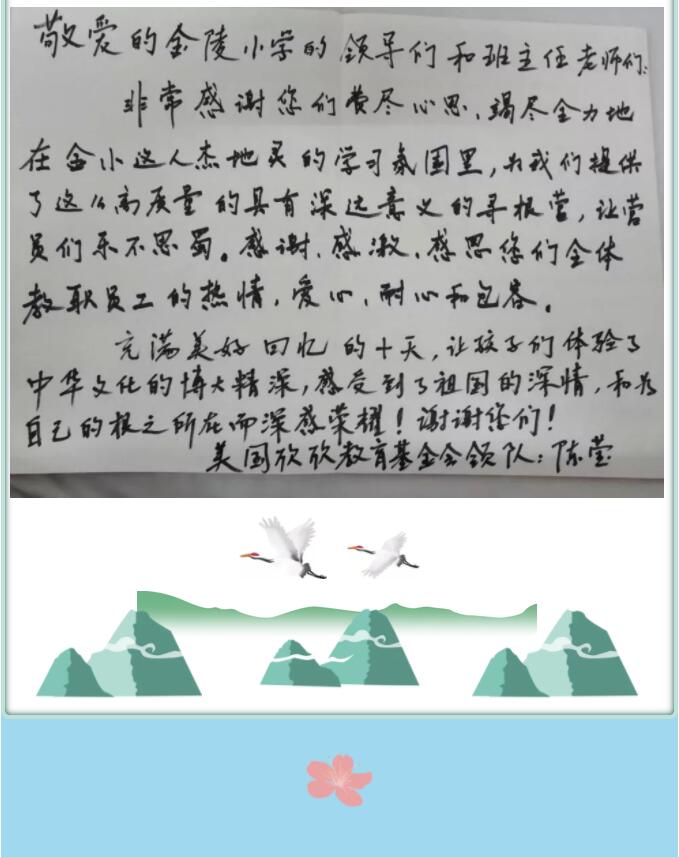 敬爱的金陵小学的领导们和班主任老师们:
非常感谢您们费尽心思,竭尽全力地
在金小这人杰地灵的学习氛围里,为我们提供
了这么高质量的具有深远意义的寻根营,让营
员们乐不思蜀。感谢、感激、感恩您们全体
教职员工的热情,爱心,耐心和包容。
充满美好回忆的十天,让孩子们体验了
中华文化的博大精深,感受到了祖国的深情,和为
自己的根之所在而深感荣耀!谢谢您们!
美国欣欣教育基金会领队:陈莹